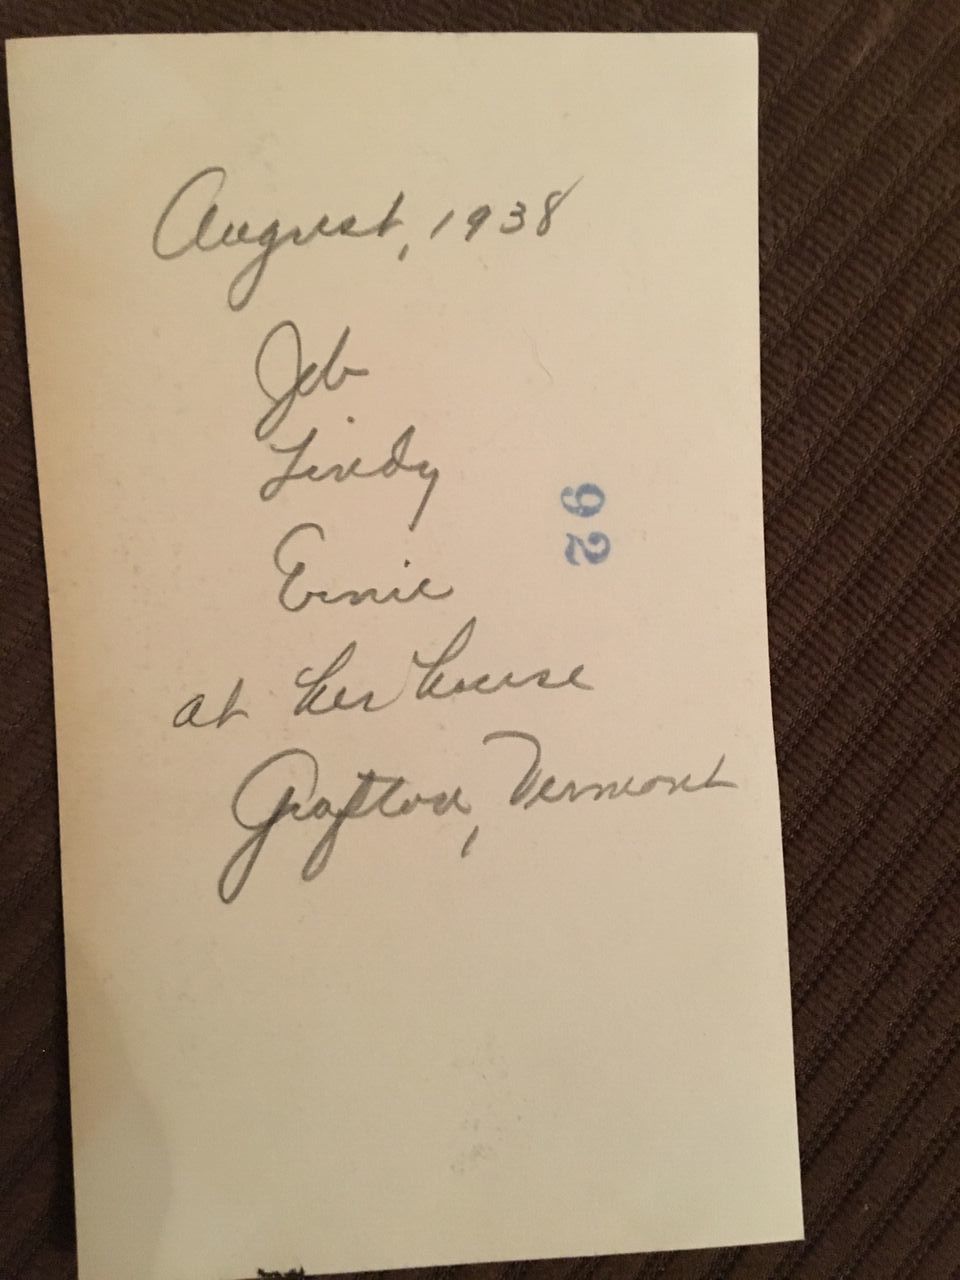 August, 1938
Jeb
Lindy
Ernie
at her house
Grafton, Vermont
92